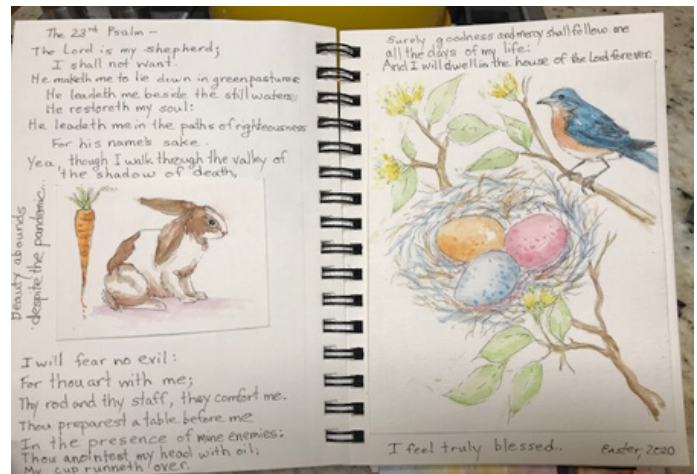 The 23rd Psalm --
The Lord is my shepherd;
I shall not want.
He maketh me to lie down in green pastures
He leadeth me beside the still waters
He restoreth my soul:
He leadeth me in the paths of righteousness
For his name's sake.
Yea, though I walk through the valley of
the shadow of death,
Beauty abounds
despite the pandemic..
I will fear no evil:
For thou art with me;
Thy rod and thy staff, they comfort me.
Thou preparest a table before me
In the presence of mine enemies:
Thou anointest my head with oil;
My cup runneth over.
Surely goodness and mercy shall follow me
all the days of my life:
And I will dwell in the house of the Lord forever.
I feel truly blessed..
Easter, 2020